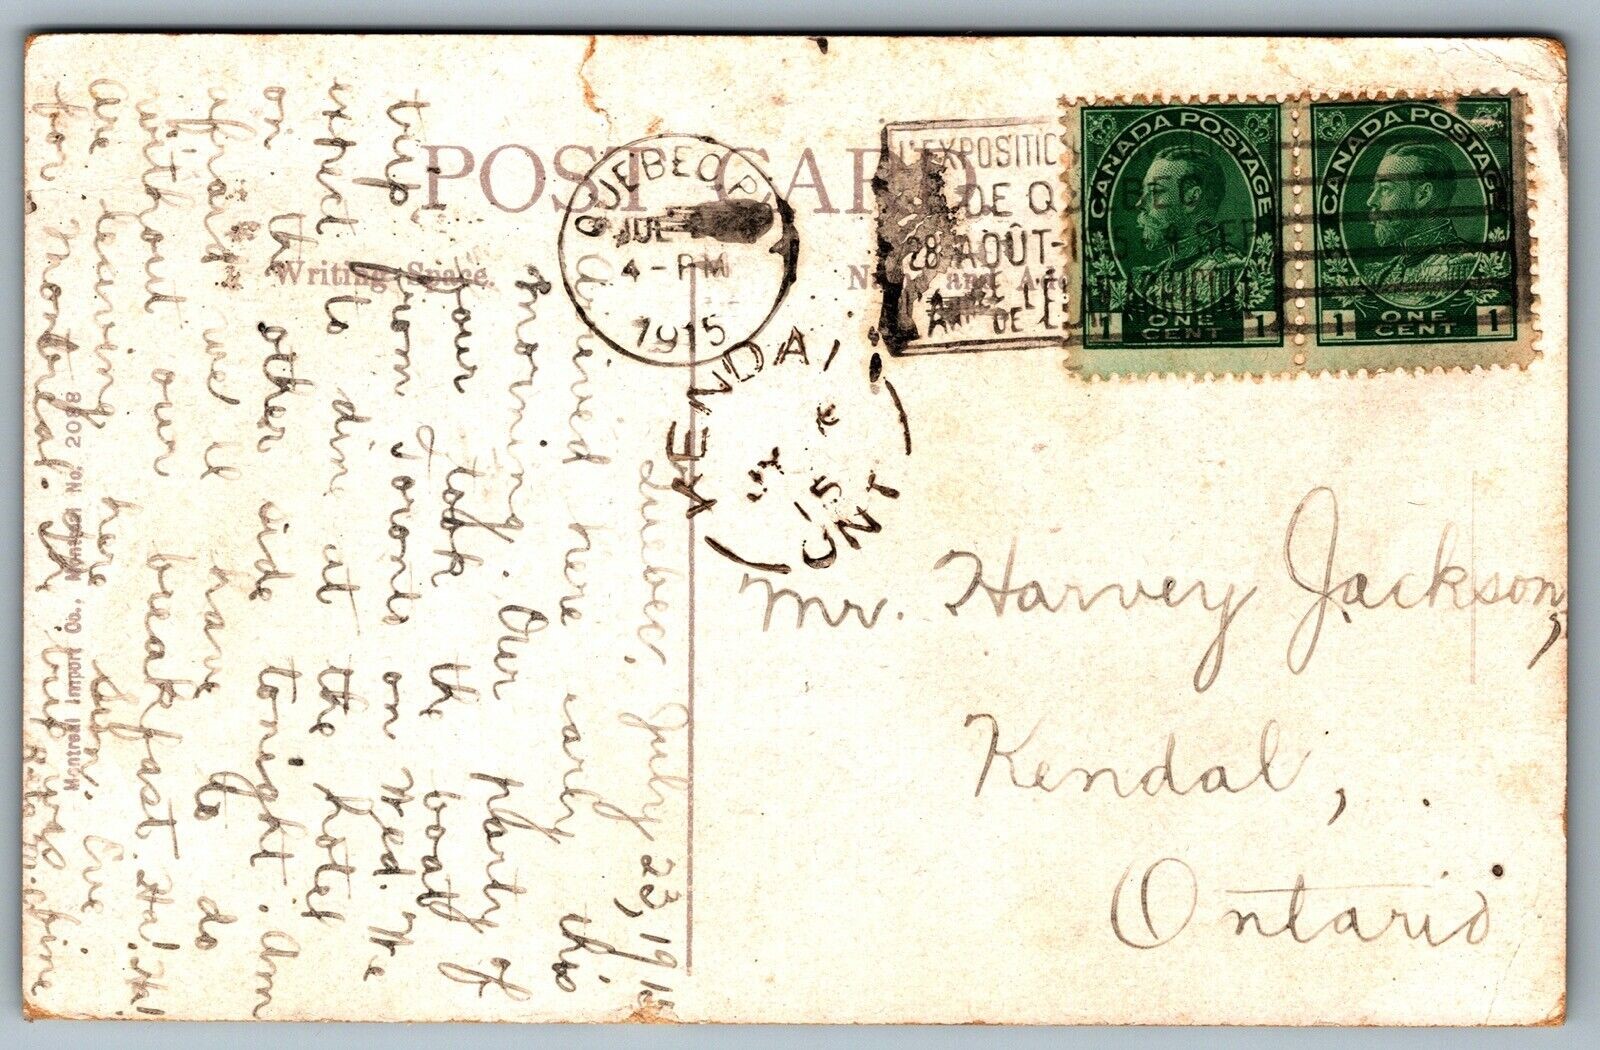 POST CARD.
Writing Space.
QUEBEC, P
JUL
4 - PM
1915
L'EXPOSITIO
DE QUEBEC
28 AOÛT
4 SEP
KENDAL
15
ONT
CANADA POSTAGE
1 ONE CENT 1
CANADA POSTAGE
1 ONE CENT 1
Quebec, July 23, 1915
Arrived here early this
morning. Our party of
four took the boat
from Toronto on Wed. We
expect to dine at the hotel
on the other side tonight. Am
afraid we'll have to do
without our breakfast. Ha! Ha!
Are leaving here Sun. Eve
for Montreal.
trip
Mr. Harvey Jackson,
Kendal,
Ontario
Montreal Import Co., Montreal No. 2088